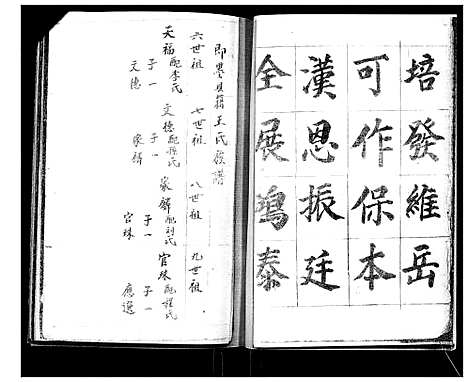 培發維岳
可作保本
漢恩振廷
全展鴻泰
王氏族譜
六世祖 七世祖 八世祖 九世祖
天福配李氏 文德配程氏 家麟配刘氏 官林配程氏
子一 子一 子一 子一
元德 家麟 官林 應選